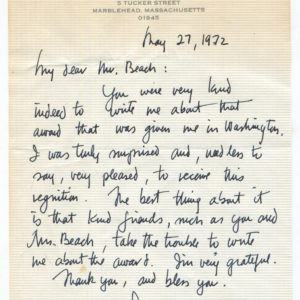 5 TUCKER STREET
MARBLEHEAD, MASSACHUSETTS
01945
May 27, 1972
My dear Mr. Beach:
You were very kind
indeed to write me about that
award that was given me in Washington.
I was truly surprised and, needless to
say, very pleased, to receive this
recognition. The best thing about it
is that kind friends, such as you and
Mrs. Beach, take the trouble to write
me about the award. I'm very grateful.
Thank you, and bless you.